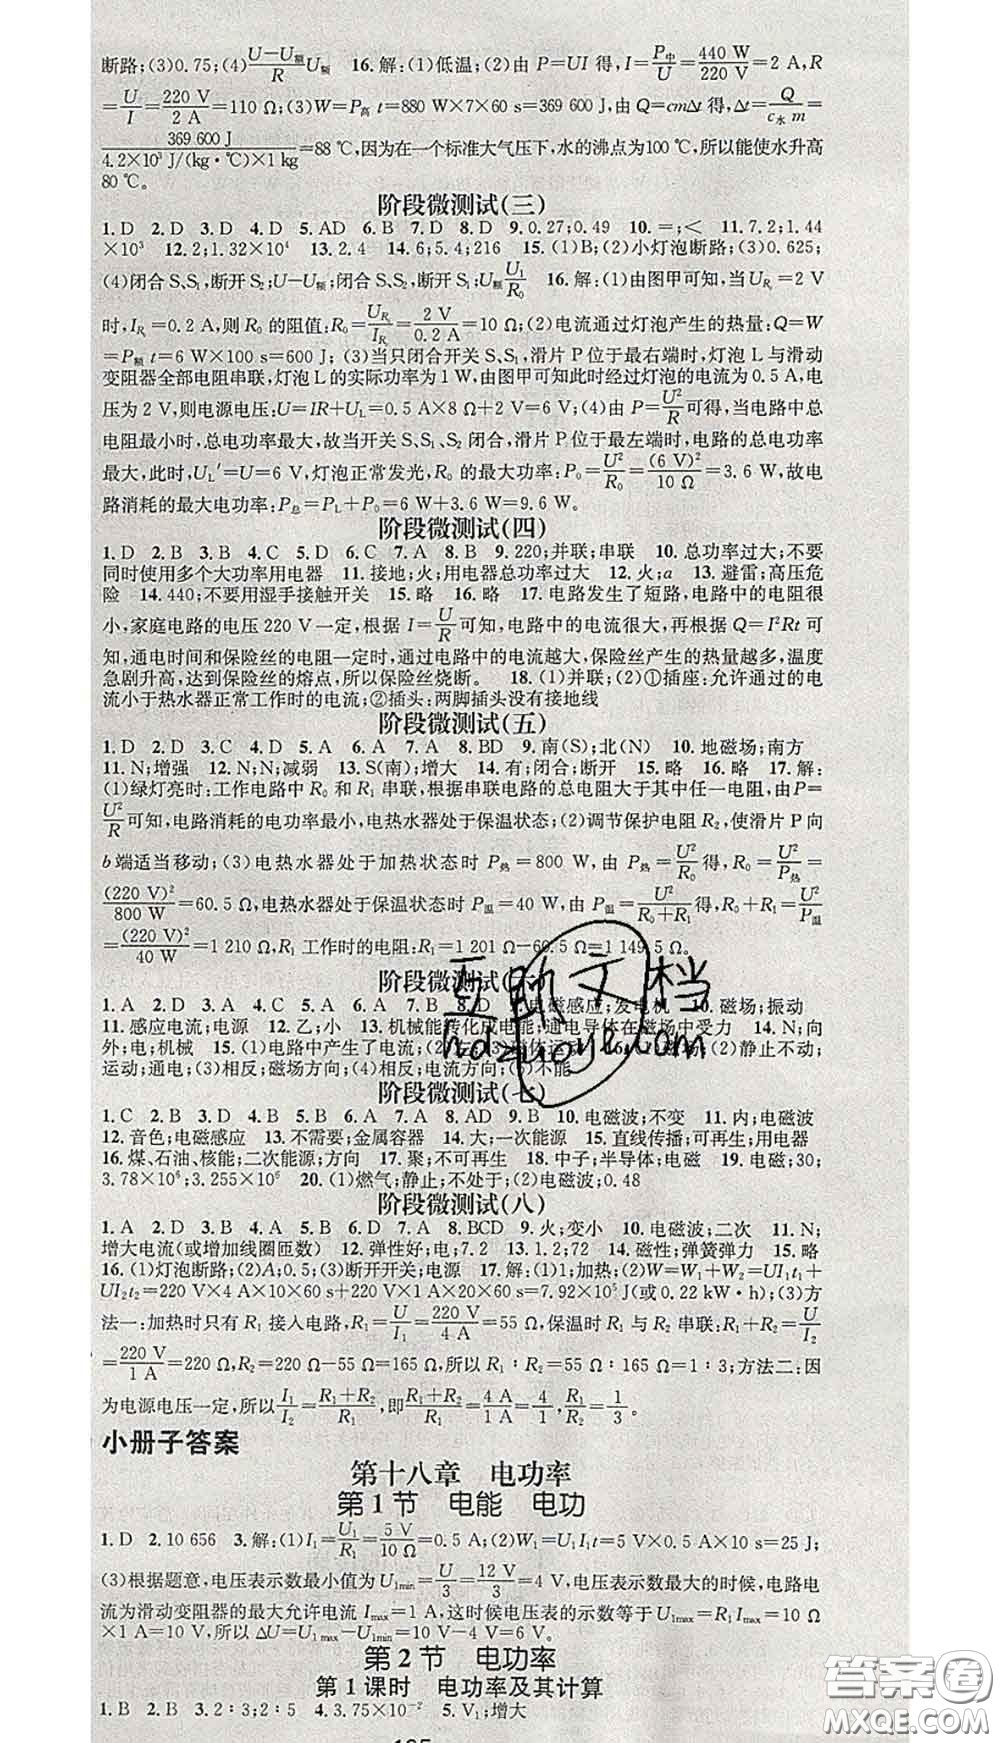 断路;(3)0.75;(4)(U－U额)/R U额　16.解:(1)低温;(2)由 P=UI 得,I=P中/U=440 W/220 V=2 A,R
=U/I=220 V/2 A=110 Ω;(3)W=P高 t=880 W×7×60 s=369 600 J,由 Q=cmΔt 得,Δt=Q/(c水 m)=
369 600 J/(4.2×10³ J/(kg·℃)×1 kg)=88 ℃,因为在一个标准大气压下,水的沸点为100 ℃,所以能使水升高
80 ℃。
阶段微测试(三)
1.D　2.D　3.D　4.D　5.AD　6.B　7.D　8.D　9.0.27;0.49　10.=;<　11.7.2;1.44
×10³　12.2;1.32×10⁴　13.2.4　14.6;5.4;216　15.(1)B;(2)小灯泡断路;(3)0.625;
(4)闭合 S、S₁,断开 S₂;U－U额;闭合 S、S₂,断开 S₁;U额 U₁/R₀　16.解:(1)由图甲可知,当 U_R=2 V
时,I_R=0.2 A,则 R₀ 的阻值:R₀=U_R/I_R=2 V/0.2 A=10 Ω;(2)电流通过灯泡产生的热量:Q=W
=P额 t=6 W×100 s=600 J;(3)当只闭合开关 S、S₁,滑片 P 位于最右端时,灯泡 L 与滑动
变阻器全部电阻串联,灯泡 L 的实际功率为 1 W,由图甲可知此时经过灯泡的电流为 0.5 A,电
压为 2 V,则电源电压:U=IR+U_L=0.5 A×8 Ω+2 V=6 V;(4)由 P=U²/R可得,当电路中总
电阻最小时,总电功率最大,故当开关 S、S₁、S₂ 闭合,滑片 P 位于最左端时,电路的总电功率
最大,此时,U_L′=U=6 V,灯泡正常发光,R₀ 的最大功率:P₀=U²/R₀=(6 V)²/10 Ω=3.6 W,故电
路消耗的最大电功率:P总=P_L+P₀=6 W+3.6 W=9.6 W。
阶段微测试(四)
1.D　2.B　3.B　4.C　5.D　6.C　7.A　8.B　9.220;并联;串联　10.总功率过大;不要
同时使用多个大功率用电器　11.接地;火;用电器总功率过大　12.火;a　13.避雷;高压危
险　14.440;不要用湿手接触开关　15.略　16.略　17.电路发生了短路,电路中的电阻很
小,家庭电路的电压 220 V 一定,根据 I=U/R可知,电路中的电流很大,再根据 Q=I²Rt 可
知,通电时间和保险丝的电阻一定时,通过电路中的电流越大,保险丝产生的热量越多,温度
急剧升高,达到保险丝的熔点,所以保险丝烧断。　18.(1)并联;(2)①插座:允许通过的电
流小于热水器正常工作时的电流;②插头:两脚插头没有接地线
阶段微测试(五)
1.D　2.B　3.B　4.D　5.A　6.C　7.A　8.BD　9.南(S);北(N)　10.地磁场;南方
11.N;增强　12.N;N;减弱　13.S(南);增大　14.有;闭合;断开　15.略　16.略　17.解:
(1)绿灯亮时:工作电路中 R₀ 和 R₁ 串联,根据串联电路的总电阻大于其中任一电阻,由P=
U²/R可知,电路消耗的电功率最小,电热水器处于保温状态;(2)调节保护电阻 R₂,使滑片 P 向
b 端适当移动;(3)电热水器处于加热状态时 P热=800 W,由 P热=U²/R₀得,R₀=U²/P热=
(220 V)²/800 W=60.5 Ω,电热水器处于保温状态时 P温=40 W,由 P温=U²/(R₀+R₁)得,R₀+R₁=U²/P温
=(220 V)²/40 W=1 210 Ω,R₁ 工作时的电阻:R₁=1 201 Ω－60.5 Ω=1 149.5 Ω。
阶段微测试(六)
1.A　2.D　3.A　4.C　5.A　6.A　7.B　8.D　9.电磁感应;发电机　10.磁场;振动
11.感应电流;电源　12.乙;小　13.机械能转化成电能;通电导体在磁场中受力　14.N;向
外;电;机械　15.(1)电路中产生了电流;(2)左;(3)磁体运动　16.(1)磁场;(2)静止不动;
运动;通电;(3)相反;磁场方向;(4)相反;电流方向;(5)不能
阶段微测试(七)
1.C　2.B　3.B　4.D　5.B　6.D　7.A　8.AD　9.B　10.电磁波;不变　11.内;电磁波
12.音色;电磁感应　13.不需要;金属容器　14.大;一次能源　15.直线传播;可再生;用电器
16.煤、石油、核能;二次能源;方向　17.聚;不可再生　18.中子;半导体;电磁　19.电磁;30;
3.78×10⁶;3.255×10⁶　20.(1)燃气;静止;不处于;(2)电磁波;0.48
阶段微测试(八)
1.A　2.D　3.B　4.A　5.B　6.D　7.A　8.BCD　9.火;变小　10.电磁波;二次　11.N;
增大电流(或增加线圈匝数)　12.弹性好;电;7.2　13.1.2;72　14.磁性;弹簧弹力　15.略
16.(1)灯泡断路;(2)A;0.5;(3)断开开关;电源　17.解:(1)1;加热;(2)W=W₁+W₂=UI₁t₁+
UI₂t₂=220 V×4 A×10×60 s+220 V×1 A×20×60 s=7.92×10⁵ J(或 0.22 kW·h);(3)方
法一:加热时只有 R₁ 接入电路,R₁=U/I₁=220 V/4 A=55 Ω,保温时 R₁ 与 R₂ 串联:R₁+R₂=U/I₂
=220 V/1 A=220 Ω,R₂=220 Ω－55 Ω=165 Ω,所以 R₁∶R₂=55 Ω∶165 Ω=1∶3;方法二:因
为电源电压一定,所以I₁/I₂=(R₁+R₂)/R₁,即(R₁+R₂)/R₁=4 A/1 A=4/1,R₁/R₂=1/3。
小册子答案
第十八章　电功率
第 1 节　电能　电功
1.D　2.10 656　3.解:(1)I₁=U₁/R₁=5 V/10 Ω=0.5 A;(2)W₁=U₁I₁t=5 V×0.5 A×10 s=25 J;
(3)根据题意,电压表示数最小值为 U₁min=U/3=12 V/3=4 V,电压表示数最大的时候,电路电
流为滑动变阻器的最大允许电流 Imax=1 A,这时候电压表的示数等于 U₁max=R₁Imax=10 Ω
×1 A=10 V,所以 ΔU=U₁max－U₁min=10 V－4 V=6 V。
第 2 节　电功率
第 1 课时　电功率及其计算
1.B　2.B　3.2∶3;2∶5　4.3.75×10⁻²　5.V₁;增大
答案圈
MXQE.COM